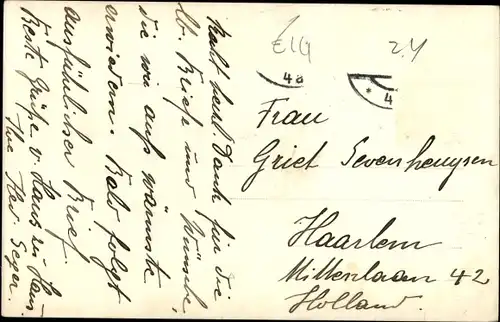 Recht herzl. Dank für die
lb. Briefe und Wünsche,
die wir aufs wärmste
erwiedern. Bald folgt
ausführlicher Brief.
Beste Grüße v. Haus zu Haus.
Ihre Hed. Geyer.
E14
24
4a
4
Frau
Griet Sevenhuysen
Haarlem
Mittenlaan 42
Holland.